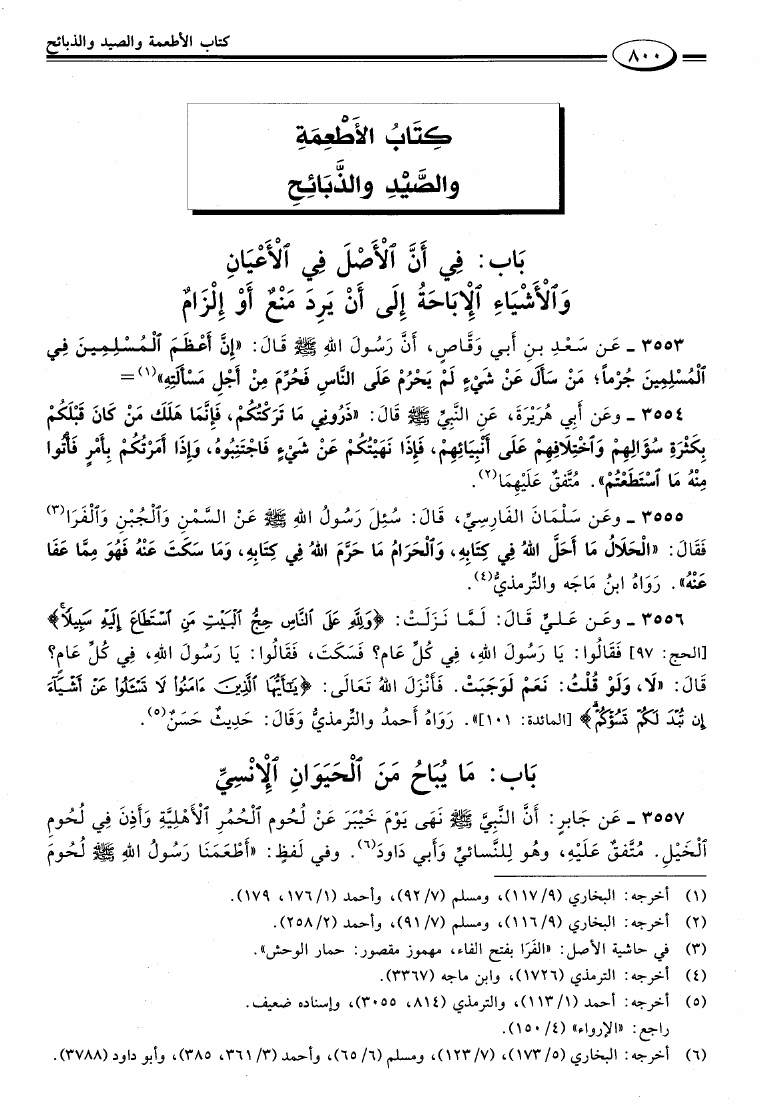 كتاب الأطعمة والصيد والذبائح
٨٠٠
كِتَابُ الأَطْعِمَةِ
والصَّيْدِ والذَّبَائِحِ
بَاب: فِي أَنَّ ٱلْأَصْلَ فِي ٱلْأَعْيَانِ
وَٱلْأَشْيَاءِ ٱلْإِبَاحَةُ إِلَى أَنْ يَرِدَ مَنْعٌ أَوْ إِلْزَامٌ
٣٥٥٣ ـ عَن سَعْدِ بنِ أَبي وَقَّاصٍ، أَنَّ رَسُولَ اللهِ ﷺ قَالَ: «إِنَّ أَعْظَمَ ٱلْمُسْلِمِينَ فِي
ٱلْمُسْلِمِينَ جُرْماً؛ مَنْ سَأَلَ عَنْ شَيْءٍ لَمْ يَحْرُمْ عَلَى النَّاسِ فَحُرِّمَ مِنْ أَجْلِ مَسْأَلَتِهِ»(١)=
٣٥٥٤ ـ وعَن أَبِي هُرَيْرَةَ، عَنِ النَّبِيِّ ﷺ قَالَ: «ذَرُونِي مَا تَرَكْتُكُمْ، فَإِنَّمَا هَلَكَ مَنْ كَانَ قَبْلَكُمْ
بِكَثْرَةِ سُؤَالِهِمْ وَٱخْتِلَافِهِمْ عَلَى أَنْبِيَائِهِمْ، فَإِذَا نَهَيْتُكُمْ عَنْ شَيْءٍ فَاجْتَنِبُوهُ، وَإِذَا أَمَرْتُكُمْ بِأَمْرٍ فَأْتُوا
مِنْهُ مَا ٱسْتَطَعْتُمْ». مُتَّفقٌ عَلَيْهِمَا(٢).
٣٥٥٥ ـ وعَن سَلْمَانَ الفَارِسِيِّ، قَالَ: سُئِلَ رَسُولُ اللهِ ﷺ عَنْ السَّمْنِ وَٱلْجُبْنِ وَٱلْفَرَا(٣)
فَقَالَ: «الْحَلَالُ مَا أَحَلَّ اللهُ فِي كِتَابِهِ، وَٱلْحَرَامُ مَا حَرَّمَ اللهُ فِي كِتَابِهِ، وَمَا سَكَتَ عَنْهُ فَهُوَ مِمَّا عَفَا
عَنْهُ». رَوَاهُ ابنُ مَاجَه والتِّرمذيُّ(٤).
٣٥٥٦ ـ وعَن عَليٍّ قَالَ: لَمَّا نَزَلَتْ: ﴿وَلِلَّهِ عَلَى النَّاسِ حِجُّ ٱلْبَيْتِ مَنِ ٱسْتَطَاعَ إِلَيْهِ سَبِيلاً﴾
[الحج: ٩٧] فَقَالُوا: يَا رَسُولَ اللهِ، فِي كُلِّ عَام؟ فَسَكَتَ، فَقَالُوا: يَا رَسُولَ اللهِ، فِي كُلِّ عَامٍ؟
قَالَ: «لَا، وَلَوْ قُلْتُ: نَعَمْ لَوَجَبَتْ. فَأَنْزَلَ اللهُ تَعَالَى: ﴿يَـٰٓأَيُّهَا ٱلَّذِينَ ءَامَنُوا۟ لَا تَسْـَٔلُوا۟ عَنْ أَشْيَآءَ
إِن تُبْدَ لَكُمْ تَسُؤْكُمْ﴾ [المائدة: ١٠١]». رَوَاهُ أَحمدُ والتِّرمذيُّ وَقَالَ: حَدِيثٌ حَسَنٌ(٥).
بَاب: مَا يُبَاحُ مَنَ ٱلْحَيَوَانِ ٱلْإِنْسِيِّ
٣٥٥٧ ـ عَن جَابِرٍ: أَنَّ النَّبِيَّ ﷺ نَهَى يَوْمَ خَيْبَرَ عَنْ لُحُومِ ٱلْحُمُرِ ٱلْأَهْلِيَّةِ وَأَذِنَ فِي لُحُومِ
ٱلْخَيْلِ. مُتَّفقٌ عَلَيْهِ، وهُو لِلنَّسائيِّ وَأَبي دَاودَ(٦). وفي لَفظٍ: «أَطْعَمَنَا رَسُولُ اللهِ ﷺ لُحُومَ
(١) أخرجه: البخاري (٩/ ١١٧)، ومسلم (٧/ ٩٢)، وأحمد (١/ ١٧٦، ١٧٩).
(٢) أخرجه: البخاري (٩/ ١١٦)، ومسلم (٧/ ٩١)، وأحمد (٢/ ٢٥٨).
(٣) في حاشية الأصل: «الفَرَا بفتح الفاء، مهموز مقصور: حمار الوحش».
(٤) أخرجه: الترمذي (١٧٢٦)، وابن ماجه (٣٣٦٧).
(٥) أخرجه: أحمد (١/ ١١٣)، والترمذي (٨١٤، ٣٠٥٥)، وإسناده ضعيف.
راجع: «الإرواء» (٤/ ١٥٠).
(٦) أخرجه: البخاري (٥/ ١٧٣)، (٧/ ١٢٣)، ومسلم (٦/ ٦٥)، وأحمد (٣/ ٣٦١، ٣٨٥)، وأبو داود (٣٧٨٨).